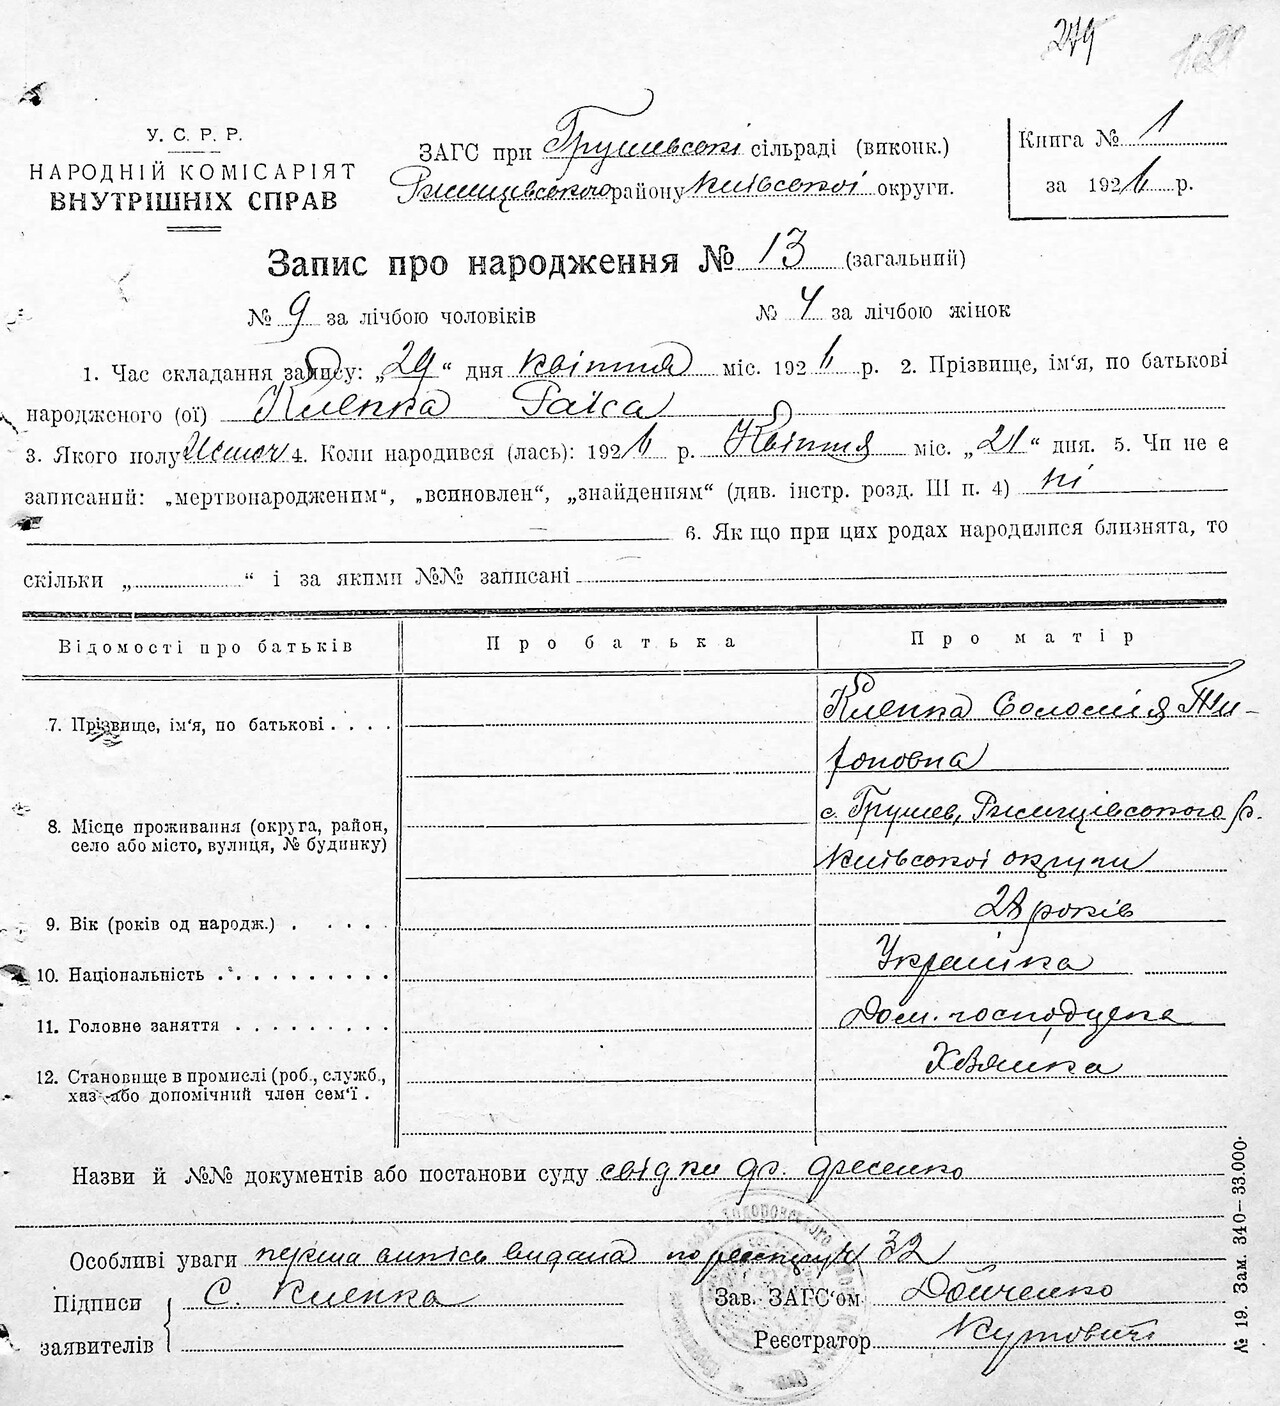 279
У. С. Р. Р.
НАРОДНІЙ КОМІСАРІЯТ
ВНУТРІШНІХ СПРАВ
ЗАГС при Грушевській сільраді (виконк.)
Ржищівського району Київської округи.
Книга № 1
за 1926 р.
Запис про народження № 13 (загальний)
№ 9 за лічбою чоловіків № 4 за лічбою жінок
1. Час складання запису: „29“ дня квітня міс. 1926 р. 2. Прізвище, ім‘я, по батькові
народженого (ої) Клепка Раїса
3. Якого полу жіноч 4. Коли народився (лась): 1926 р. Квітня міс. „21“ дня. 5. Чи не є
записаний: „мертвонародженим“, „всиновлен“, „знайденням“ (див. інстр. розд. III п. 4) ні
6. Як що при цих родах народилися близнята, то
скільки „ “ і за якими №№ записані
Відомості про батьків Про батька Про матір
7. Прізвище, ім‘я, по батькові . . . . Клепка Соломія Ти-
фоновна
8. Місце проживання (округа, район, с. Грушев, Ржищівського р.
село або місто, вулиця, № будинку) Київської округи
9. Вік (років од народж.) . . . . . 28 років
10. Національність . . . . . . . . . . Українка
11. Головне заняття . . . . . . . . . Дом. господарка
12. Становище в промислі (роб., служб., Хазяйка
хаз. або допомічний член сем‘ї .
Назви й №№ документів або постанови суду свідки
Особливі уваги перша випись видана по реєстру № 32
Підписи С. Клепка Зав. ЗАГС‘ом Дойченко
заявителів Реєстратор Кутович
№ 19. Зам. 340—33.000.